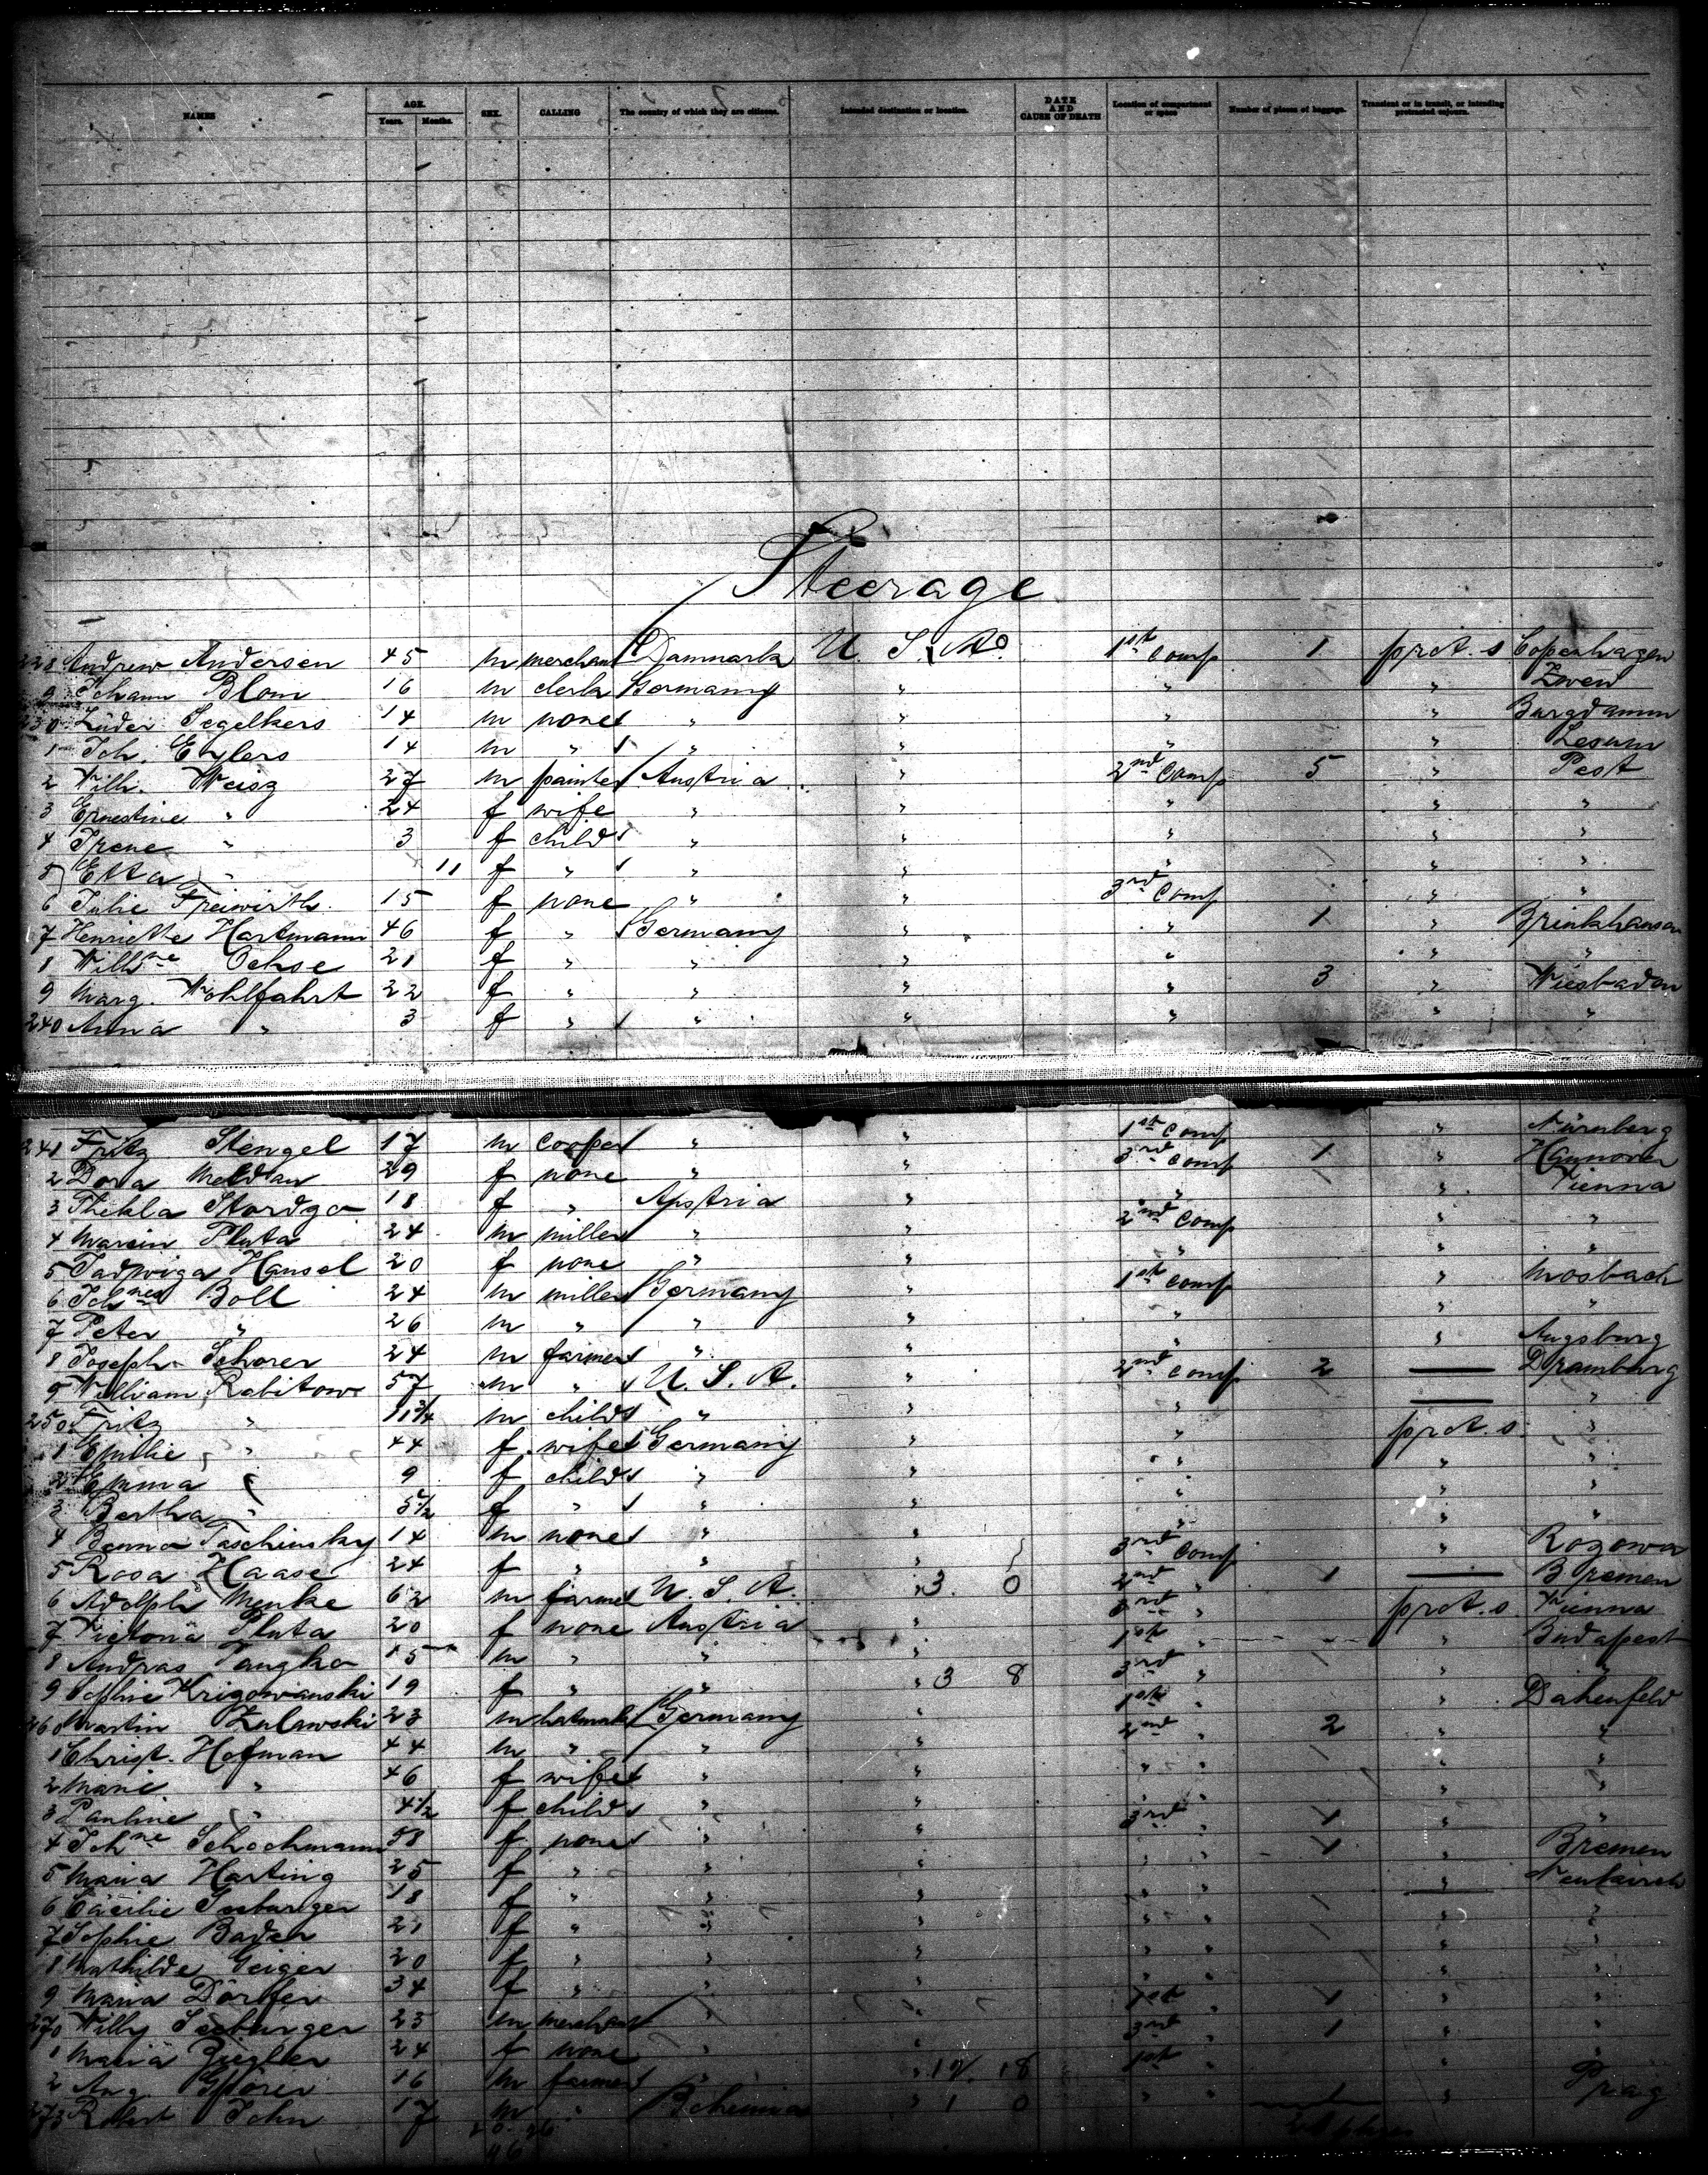 NAMES AGE. Years. Months. SEX. CALLING The country of which they are citizens. Intended destination or location. DATE AND CAUSE OF DEATH Location of compartment or space Number of pieces of baggage. Transient or in transit, or intending protracted sojourn.
Steerage
228 Andrew Andersen 45 m merchant Danmark U. S. A. 1st Comp 1 prct. s Copenhagen
9 Johann Blom 16 m clerk Germany " " "
230 Lüder Segelkers 14 m none " " " " Burgdamm
1 Joh. Ehlers 14 m " " " " " Lesum
2 Wilh. Weisz 27 m painter Austria " 2nd Comp 5 " Pest
3 Ernestine " 24 f wife " " " " "
4 Irene " 3 f child " " " " "
5 Etta " 11 f " " " " " "
6 Julie Freiwirth 15 f none " " 3rd Comp " "
7 Henriette Hartmann 46 f " Germany " " 1 " Brinkhausen
8 Wilhne Ochse 21 f " " " " " "
9 Marg. Wohlfahrt 22 f " " " " 3 " Wiesbaden
240 Anna " 3 f " " " " " "
241 Fritz Stengel 17 m cooper " " 1st Comp " Nürnberg
2 Dora Meldau 29 f none " " 3rd Comp 1 " Hannover
3 Thekla 18 f " Austria " " " Vienna
4 Marcin Pluta 24 m miller " " 2nd Comp " "
5 Jadwiga Hansel 20 f none " " " " "
6 Johnes Boll 24 m miller Germany " 1st Comp " Mosbach
7 Peter " 26 m " " " " " "
8 Joseph Schorer 24 m farmer " " " " Augsburg
9 William Rabitow 57 m " U. S. A. " 2nd Comp 2 — Dramburg
250 Fritz " 11 3/4 m child " " " — "
1 Emilie " 44 f wife Germany " " prct. s. "
2 Emma " 9 f child " " " " "
3 Bertha " 5 1/2 f " " " " " "
4 Benno Taschinsky 14 m none " " " " "
5 Rosa Haase 24 f " " " 3rd Comp " Rogowo
6 Adolph Menke 62 m farmer U. S. A. " 3. 0 2nd " 1 — Bremen
7 Victoria Pluta 20 f none Austria " 3rd " prct. s. Vienna
8 Andras 15 m " " " 1st " " Budapest
9 Sophie Krigowanski 19 f " " " 3 8 3rd " " "
260 Martin Zulawski 23 m Germany " 1st " " Dahenfeld
1 Christ. Hofman 44 m " " " 2nd " 2 " "
2 Marie " 46 f wife " " " " " "
3 Pauline " 4 1/2 f child " " " " " "
4 Johne Schochmann 58 f none " " 3rd " 1 " "
5 Maria Harting 25 f " " " " " 1 " Bremen
6 Cäcilie Seeburger 18 f " " " " " " Neukirch
7 Sophie Bader 21 f " " " " " " "
8 Mathilde Geiger 20 f " " " " " " "
9 Maria Dörfer 34 f " " " " " " "
270 Willy Seeburger 23 m merchant " " 1st " 1 " "
1 Maria Ziegler 24 f none " " 3rd " 1 " "
2 Aug. 16 m farmer " " 18 1st " " "
273 Robert John 17 m " Bohemia " 1 0 " " " Prag